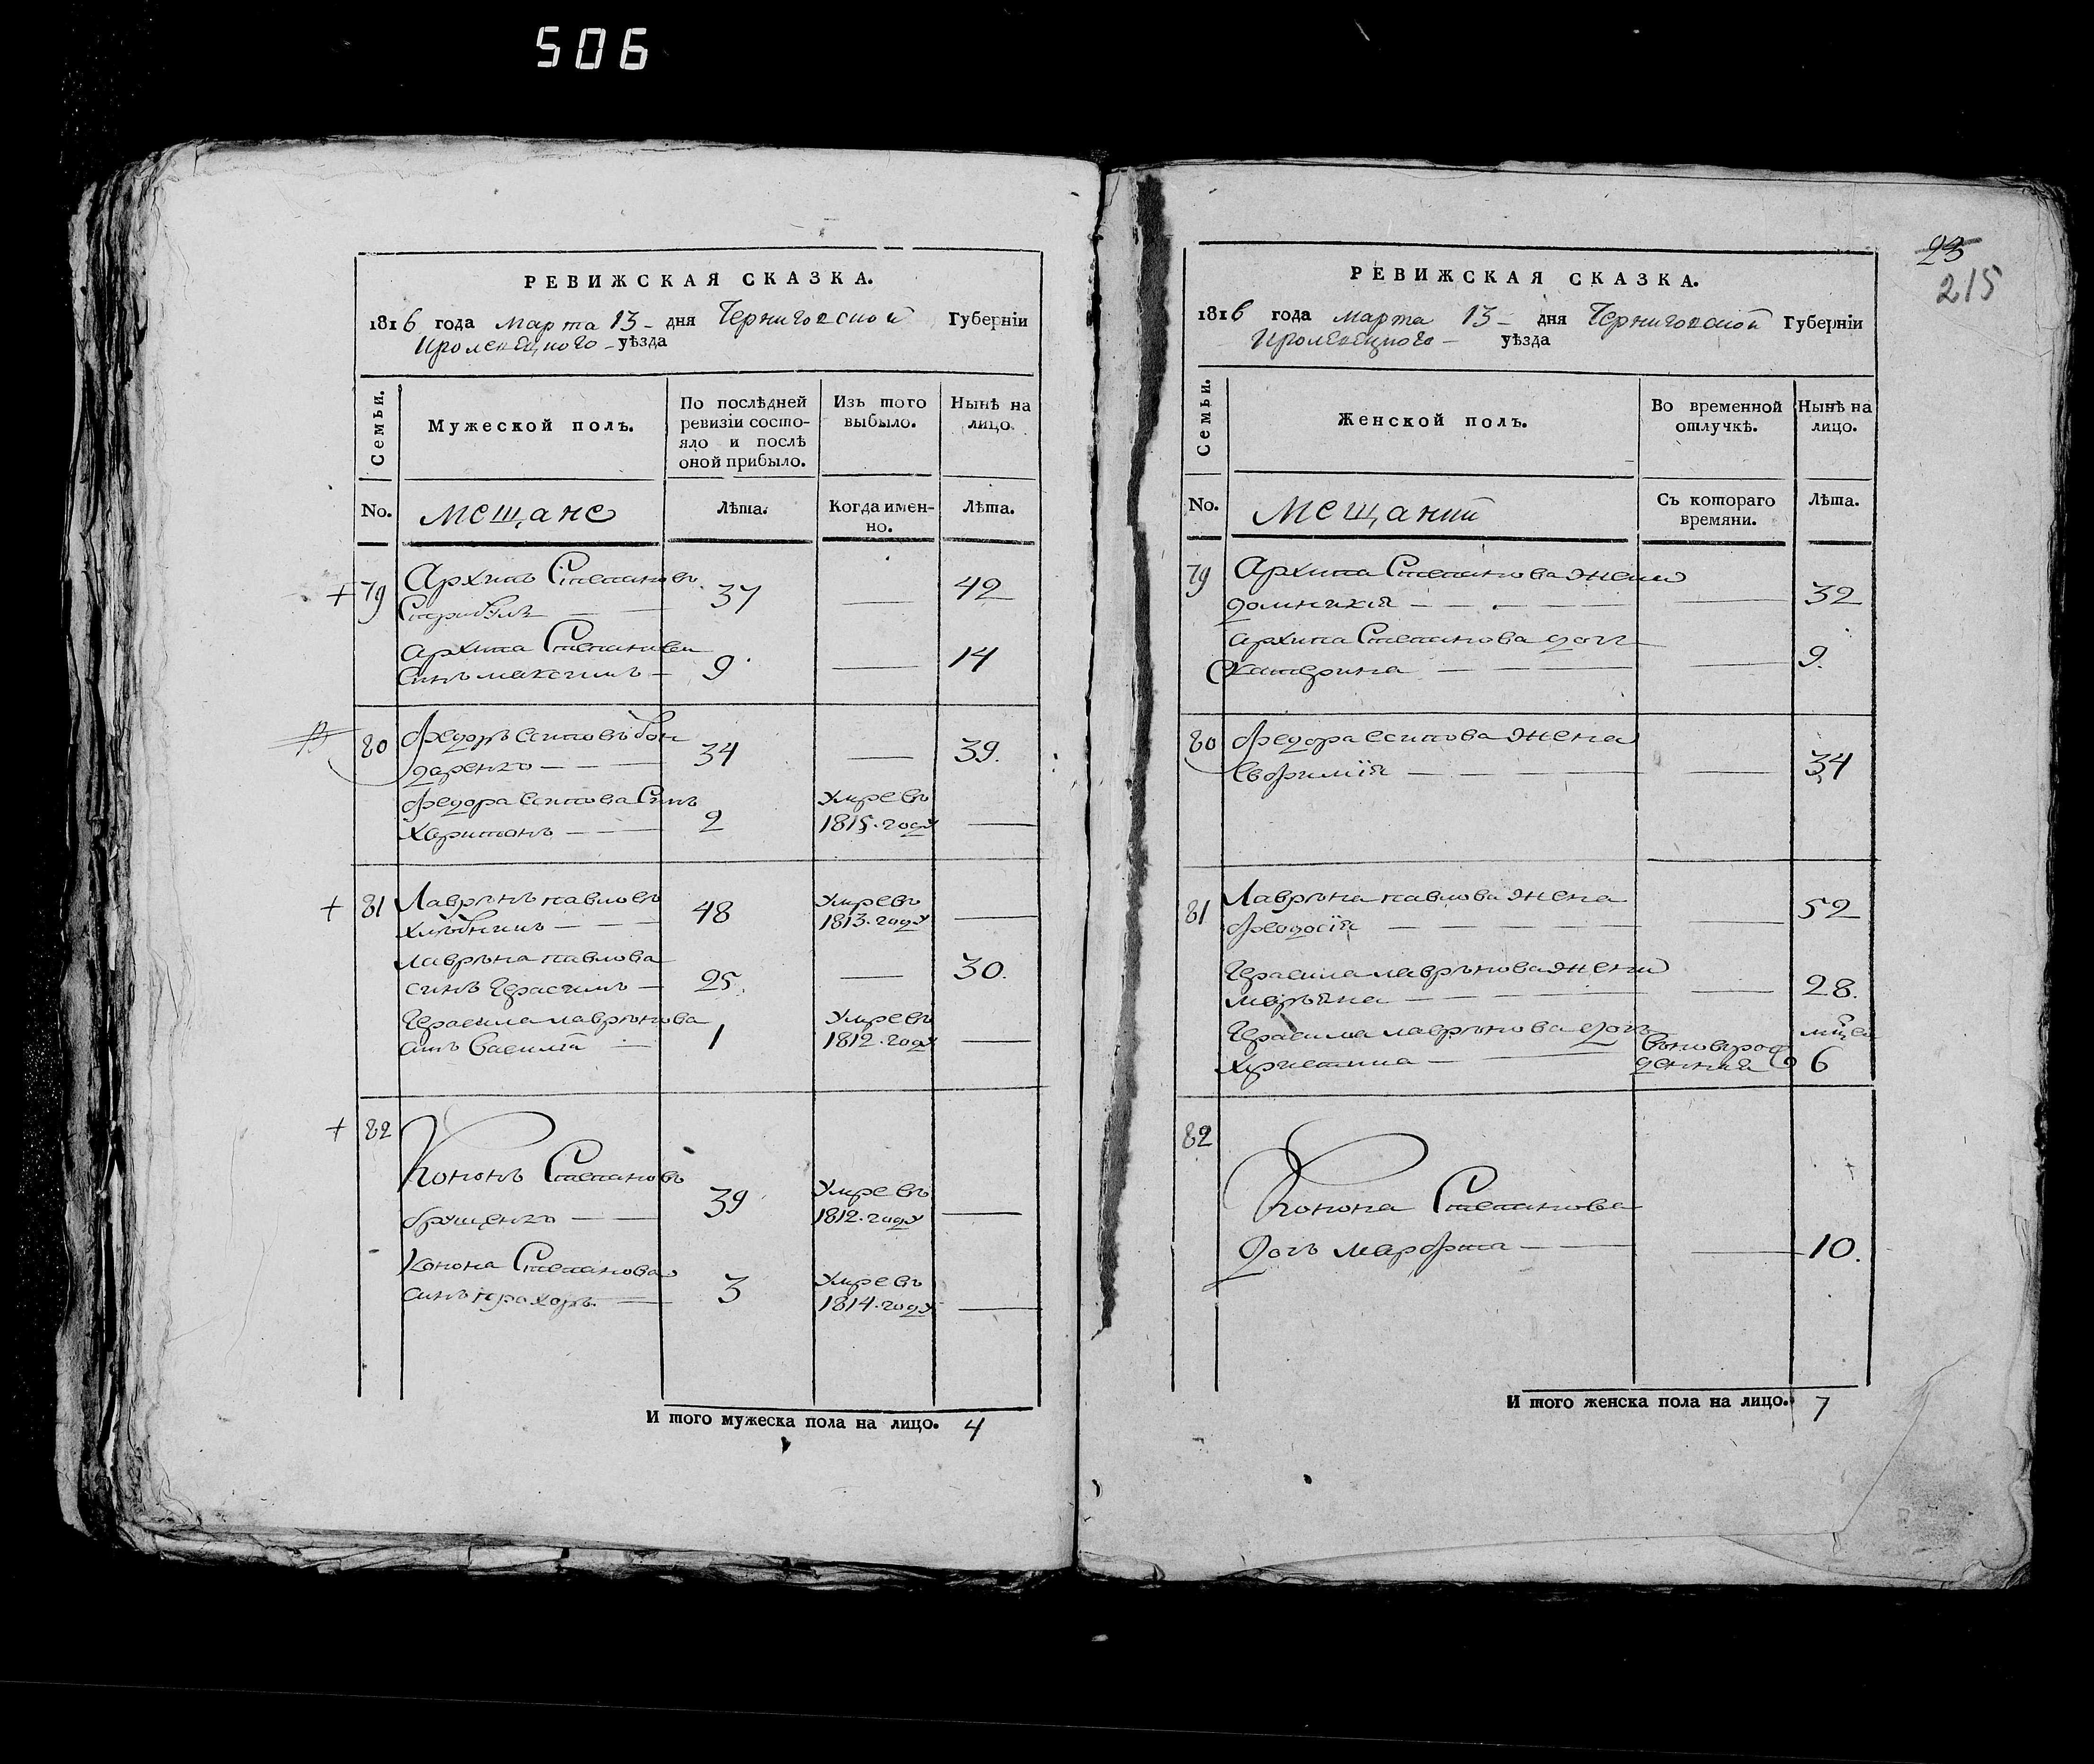 506
РЕВИЖСКАЯ СКАЗКА.
1816 года Марта 13 - дня Черниговской Губерніи
Кролевецкого - уѣзда
Семьи.
Мужеской полъ.
По послѣдней ревизіи состо-
яло и послѣ
оной прибыло.
Изъ того
выбыло.
Нынѣ на
лицо.
No.
Мещане
Лѣта.
Когда имен-
но.
Лѣта.
+ 79 Архипъ Степановъ 37 — 42
Архипа Степанова 9 — 14
синъ максимъ —
80 Федоръ Есиповъ Бон 34 — 39.
даренко — — —
Федора Есипова Синъ 2 Умре въ
Харитонъ — — 1815. году —
+ 81 Лаврѣнъ павловъ 48 Умре въ
хлѣбникъ — — 1813. году —
Лаврѣна павлова
синъ Герасимъ — 25. — 30.
Герасима лаврѣнова 1 Умре въ
синъ Василій — 1812. году —
+ 82
Кононъ Степановъ 39 Умре въ
— — 1812. году —
Конона Степанова 3 Умре въ
синъ прохоръ — 1814. году —
И того мужеска пола на лицо. 4
23
215
РЕВИЖСКАЯ СКАЗКА.
1816 года Марта 13 - дня Черниговской Губерніи
Кролевецкого - уѣзда
Семьи.
Женской полъ.
Во временной
отлучкѣ.
Нынѣ на
лицо.
No.
Мещанки
Съ котораго
времяни.
Лѣта.
79 Архипа Степанова жена
домникія — — — — 32
Архипа Степанова дочь
Катерина — — — 9.
80 Федора Есипова жена
Евфимія — — — — 34
81 Лаврѣна павлова жена
Феодосія — — — — 52
Герасима лаврѣнова жена
марѣяна — — — — 28.
Герасима лаврѣнова дочь
Христина — — 6
82
Конона Степанова
Дочь Марфа — — — 10.
И того женска пола на лицо. 7